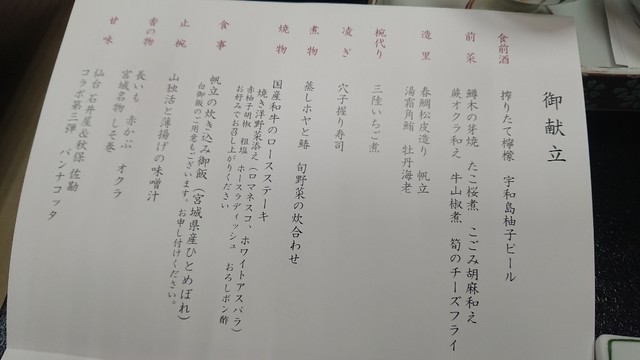 御献立
食前酒
搾りたて檸檬 宇和島柚子ビール
前菜
鱒木の芽焼 たこ桜煮 こごみ胡麻和え
蕨オクラ和え 牛山椒煮 筍のチーズフライ
造里
春鯛松皮造り 帆立
湯霜角鮪 牡丹海老
椀代り
三陸いちご煮
凌ぎ
穴子握り寿司
煮物
蒸しホヤと鰆 旬野菜の炊合わせ
焼物
国産和牛のロースステーキ
焼き洋野菜添え(ロマネスコ、ホワイトアスパラ)
赤柚子胡椒 粗塩 ホースラディッシュ おろしポン酢
お好みでお召し上がりください
食事
帆立の炊き込み御飯(宮城県産ひとめぼれ)
白御飯のご用意もございます。お申し付けください。
止椀
山独活と薄揚げの味噌汁
香の物
長いも 赤かぶ オクラ
宮城名物 しそ巻
甘味
仙台 石井屋&秋保 佐勘
コラボ第三弾 パンナコッタ